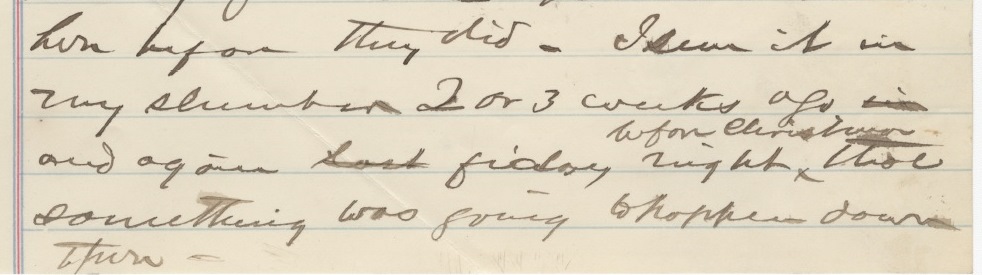 before they did - I seen it in
my slumber 2 or 3 weeks ago in
before Christmas
and again last friday night, that
something was going to happen down
there -